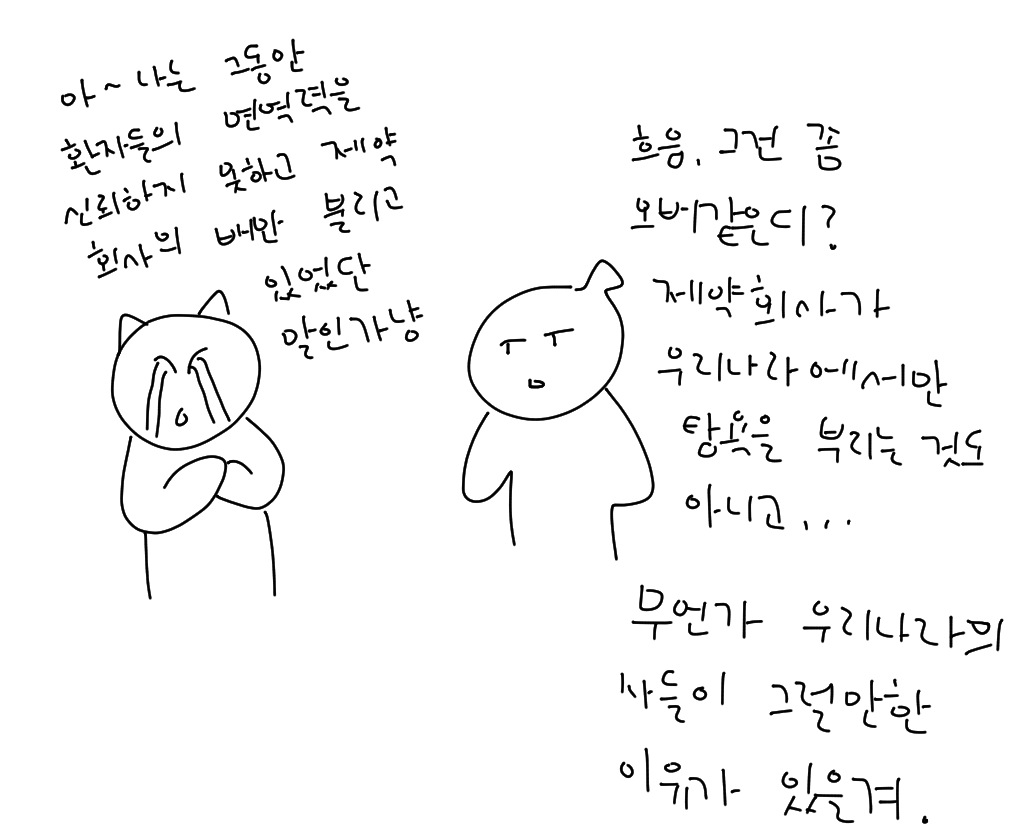 아~ 나는 그동안
환자들의 면역력을
신뢰하지 못하고 제약
회사의 배만 불리고
있었단
말인가냥
흐음. 그건 좀
오바같은디?
제약회사가
우리나라에서만
탐욕을 부리는 것도
아니고...
무언가 우리나라의
사들이 그럴만한
이유가 있을겨.